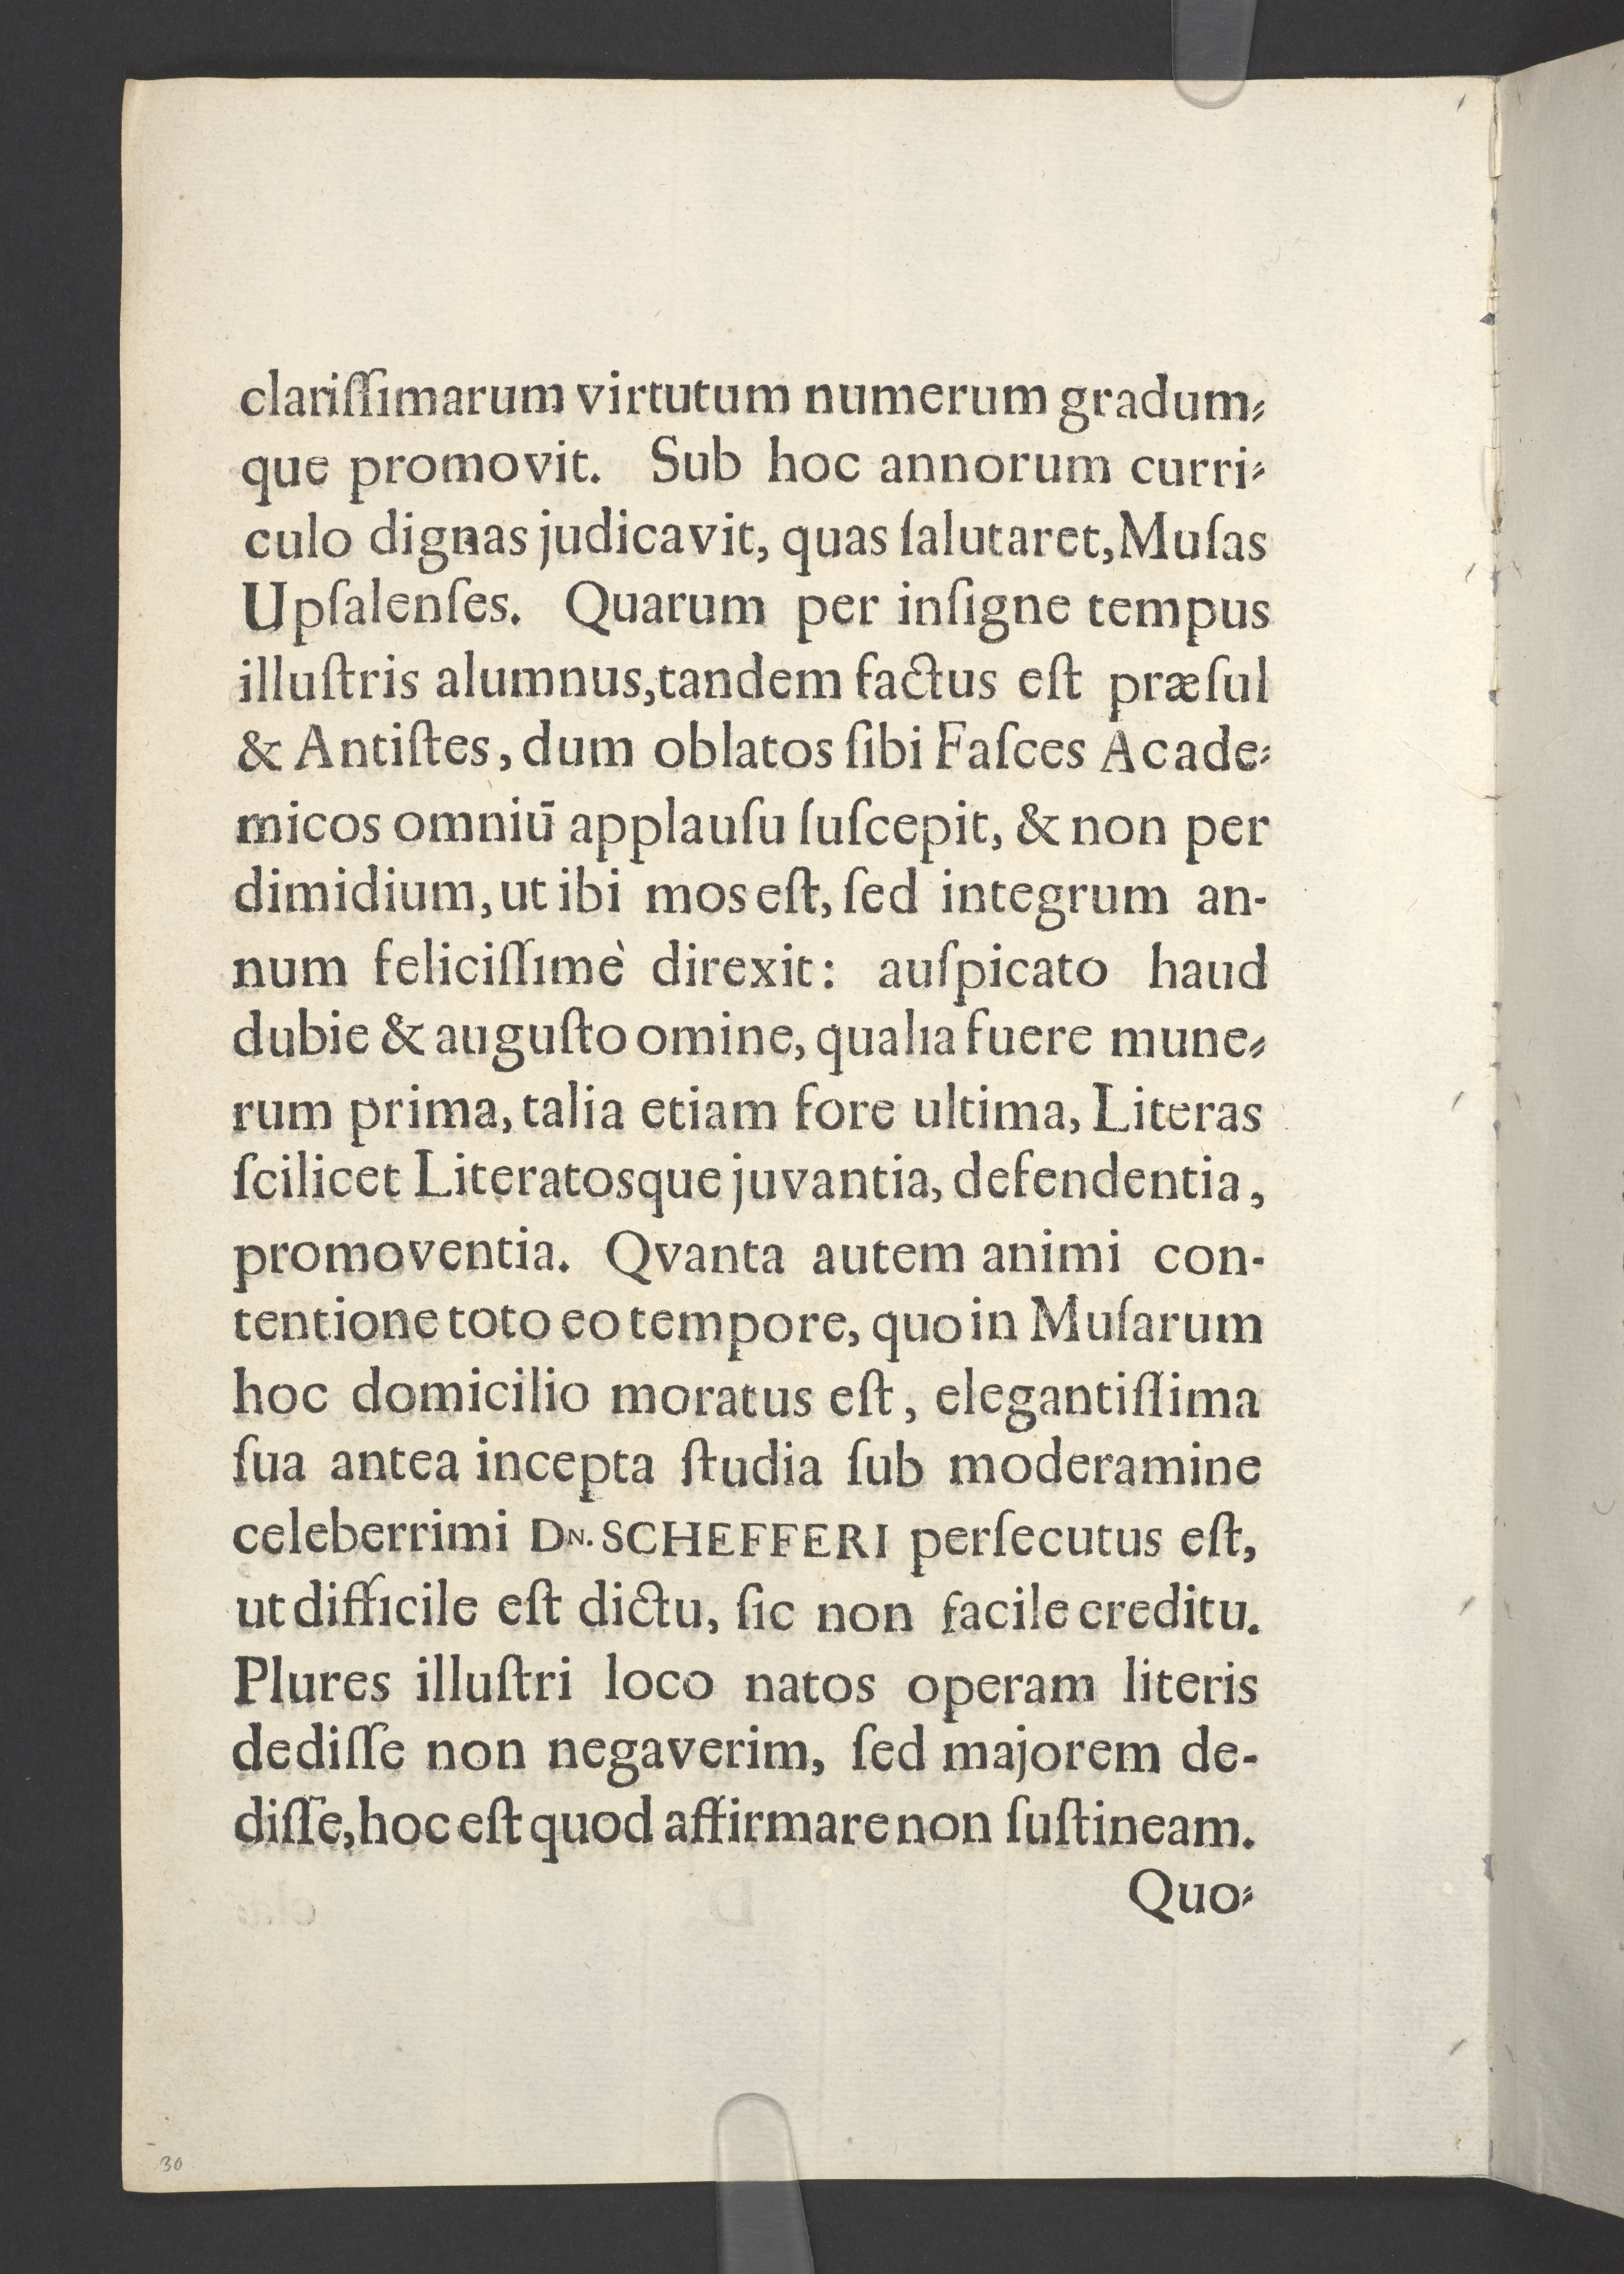 clariſſimarum virtutum numerum gradum⸗
que promovit. Sub hoc annorum curri⸗
culo dignas judicavit, quas ſalutaret, Muſas
Upſalenſes. Quarum per inſigne tempus
illuſtris alumnus, tandem factus eſt præſul
& Antiſtes, dum oblatos ſibi Faſces Acade⸗
micos omniū applauſu ſuſcepit, & non per
dimidium, ut ibi mos eſt, ſed integrum an-
num feliciſſimè direxit: auſpicato haud
dubie & auguſto omine, qualia fuere mune⸗
rum prima, talia etiam fore ultima, Literas
ſcilicet Literatosque juvantia, defendentia,
promoventia. Qvanta autem animi con-
tentione toto eo tempore, quo in Muſarum
hoc domicilio moratus eſt, elegantiſſima
ſua antea incepta ſtudia ſub moderamine
celeberrimi DN. SCHEFFERI perſecutus eſt,
ut difficile eſt dictu, ſic non facile creditu.
Plures illuſtri loco natos operam literis
dediſſe non negaverim, ſed majorem de-
diſſe, hoc eſt quod affirmare non ſuſtineam.
Quo⸗
30